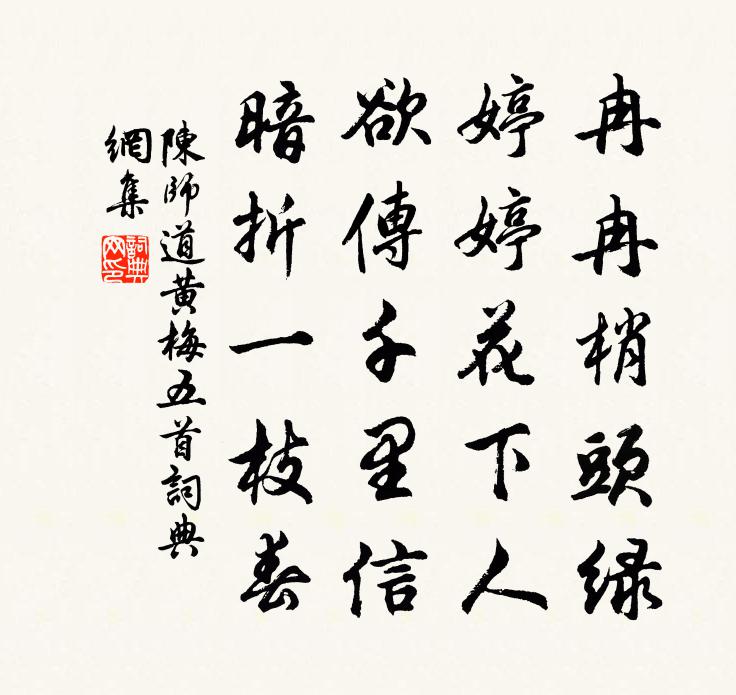 冉冉梢頭緑
婷婷花下人
欲傳千里信
暗折一枝春
陳師道黄梅五首詞典
網集
詞典
网印